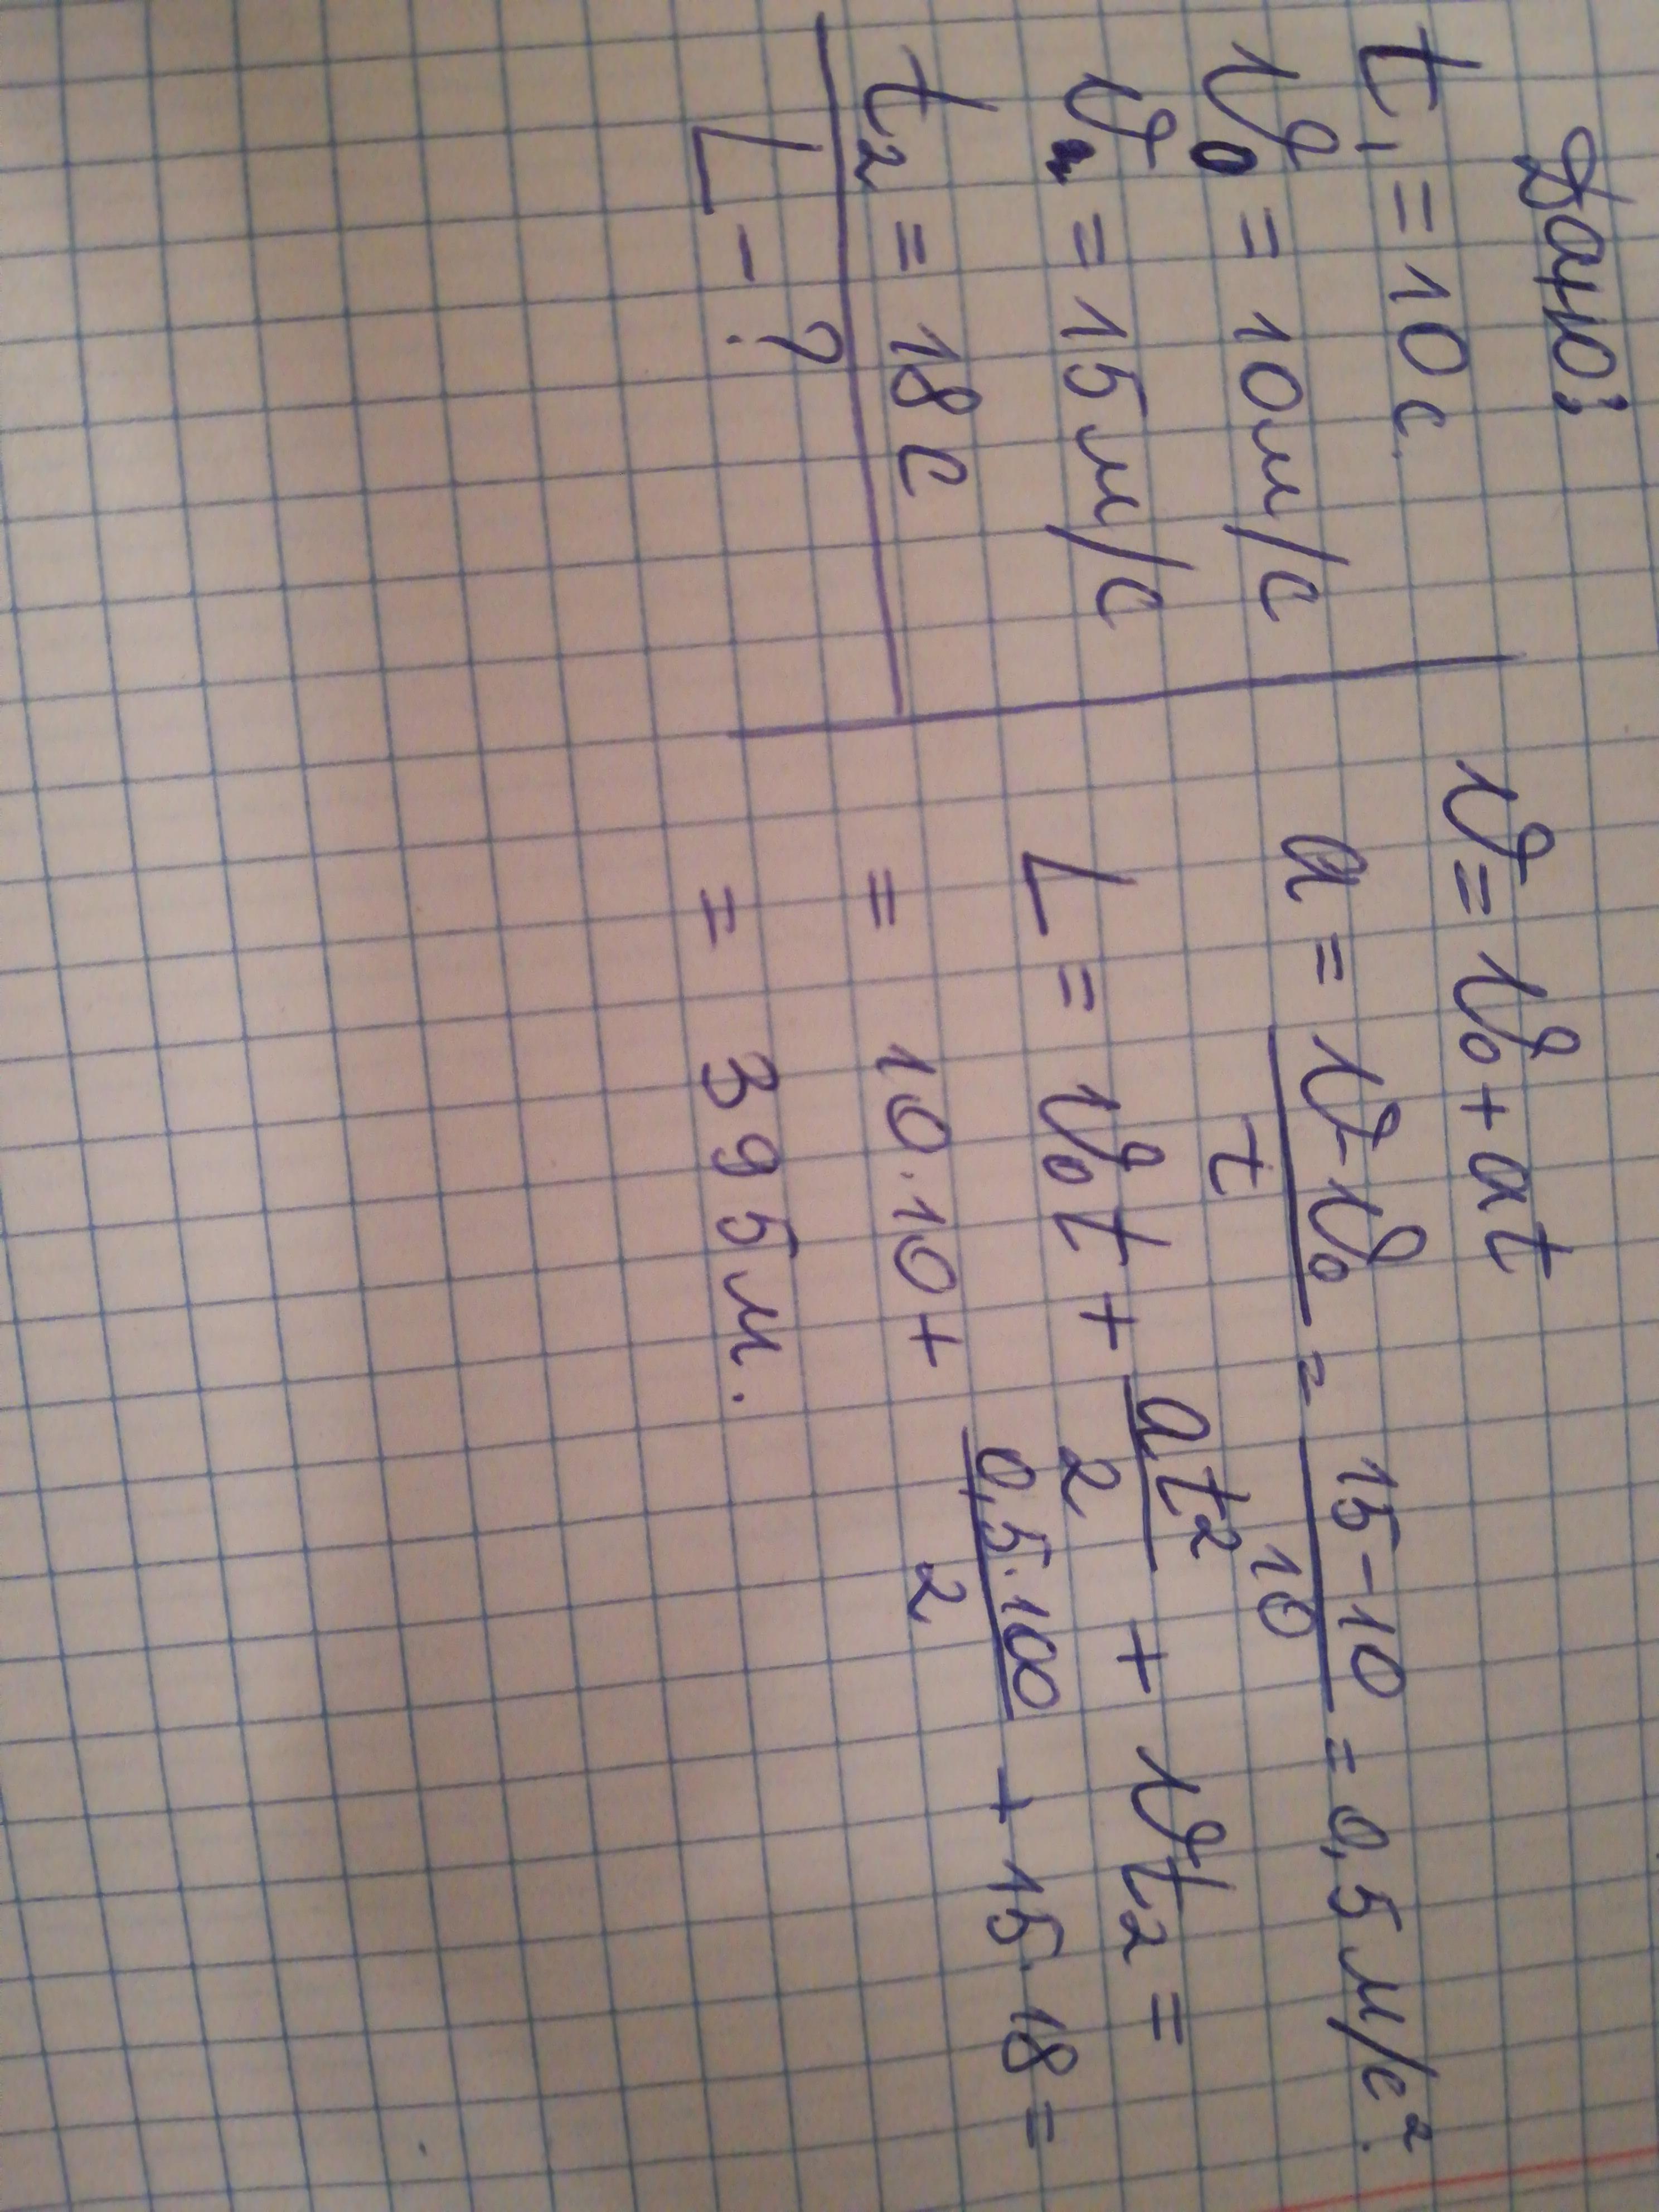 Дано:
t₁ = 10 с.
v₀ = 10 м/с
v = 15 м/с
t₂ = 18 с
L - ?
v = v₀ + at
a = (v - v₀)/t = (15 - 10)/10 = 0,5 м/с².
L = v₀t + at²/2 + vt₂ =
= 10 · 10 + 0,5 · 100/2 + 15 · 18 =
= 395 м.